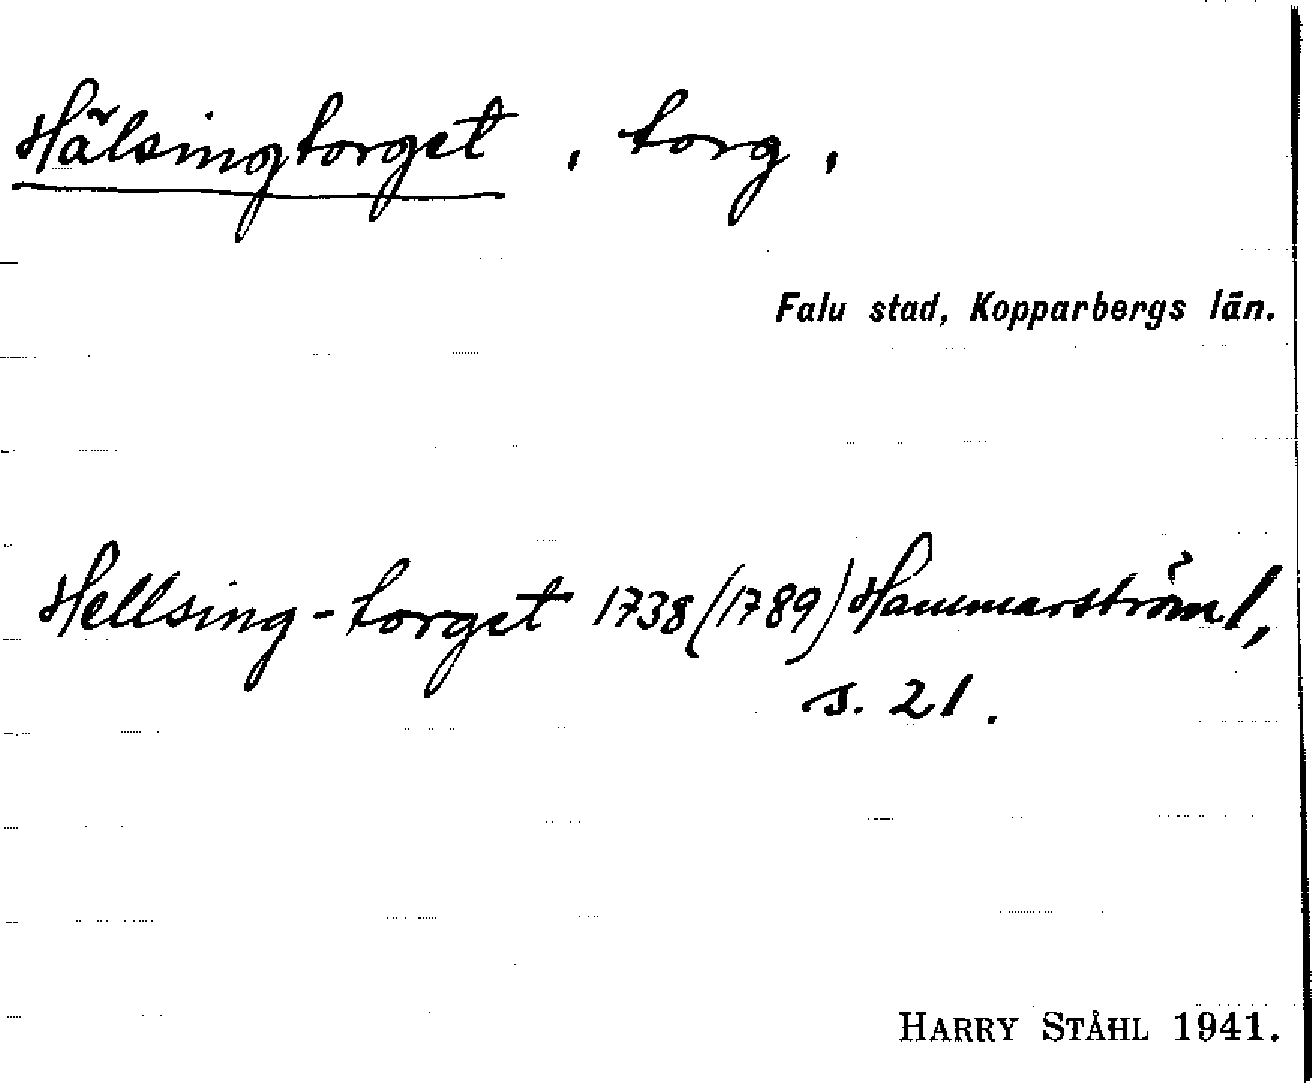 Hälsingtorget, torg,
Falu stad, Kopparbergs län.
Hellsing-torget 1738 (1789) Hammarström 1,
s. 21.
HARRY STÅHL 1941.